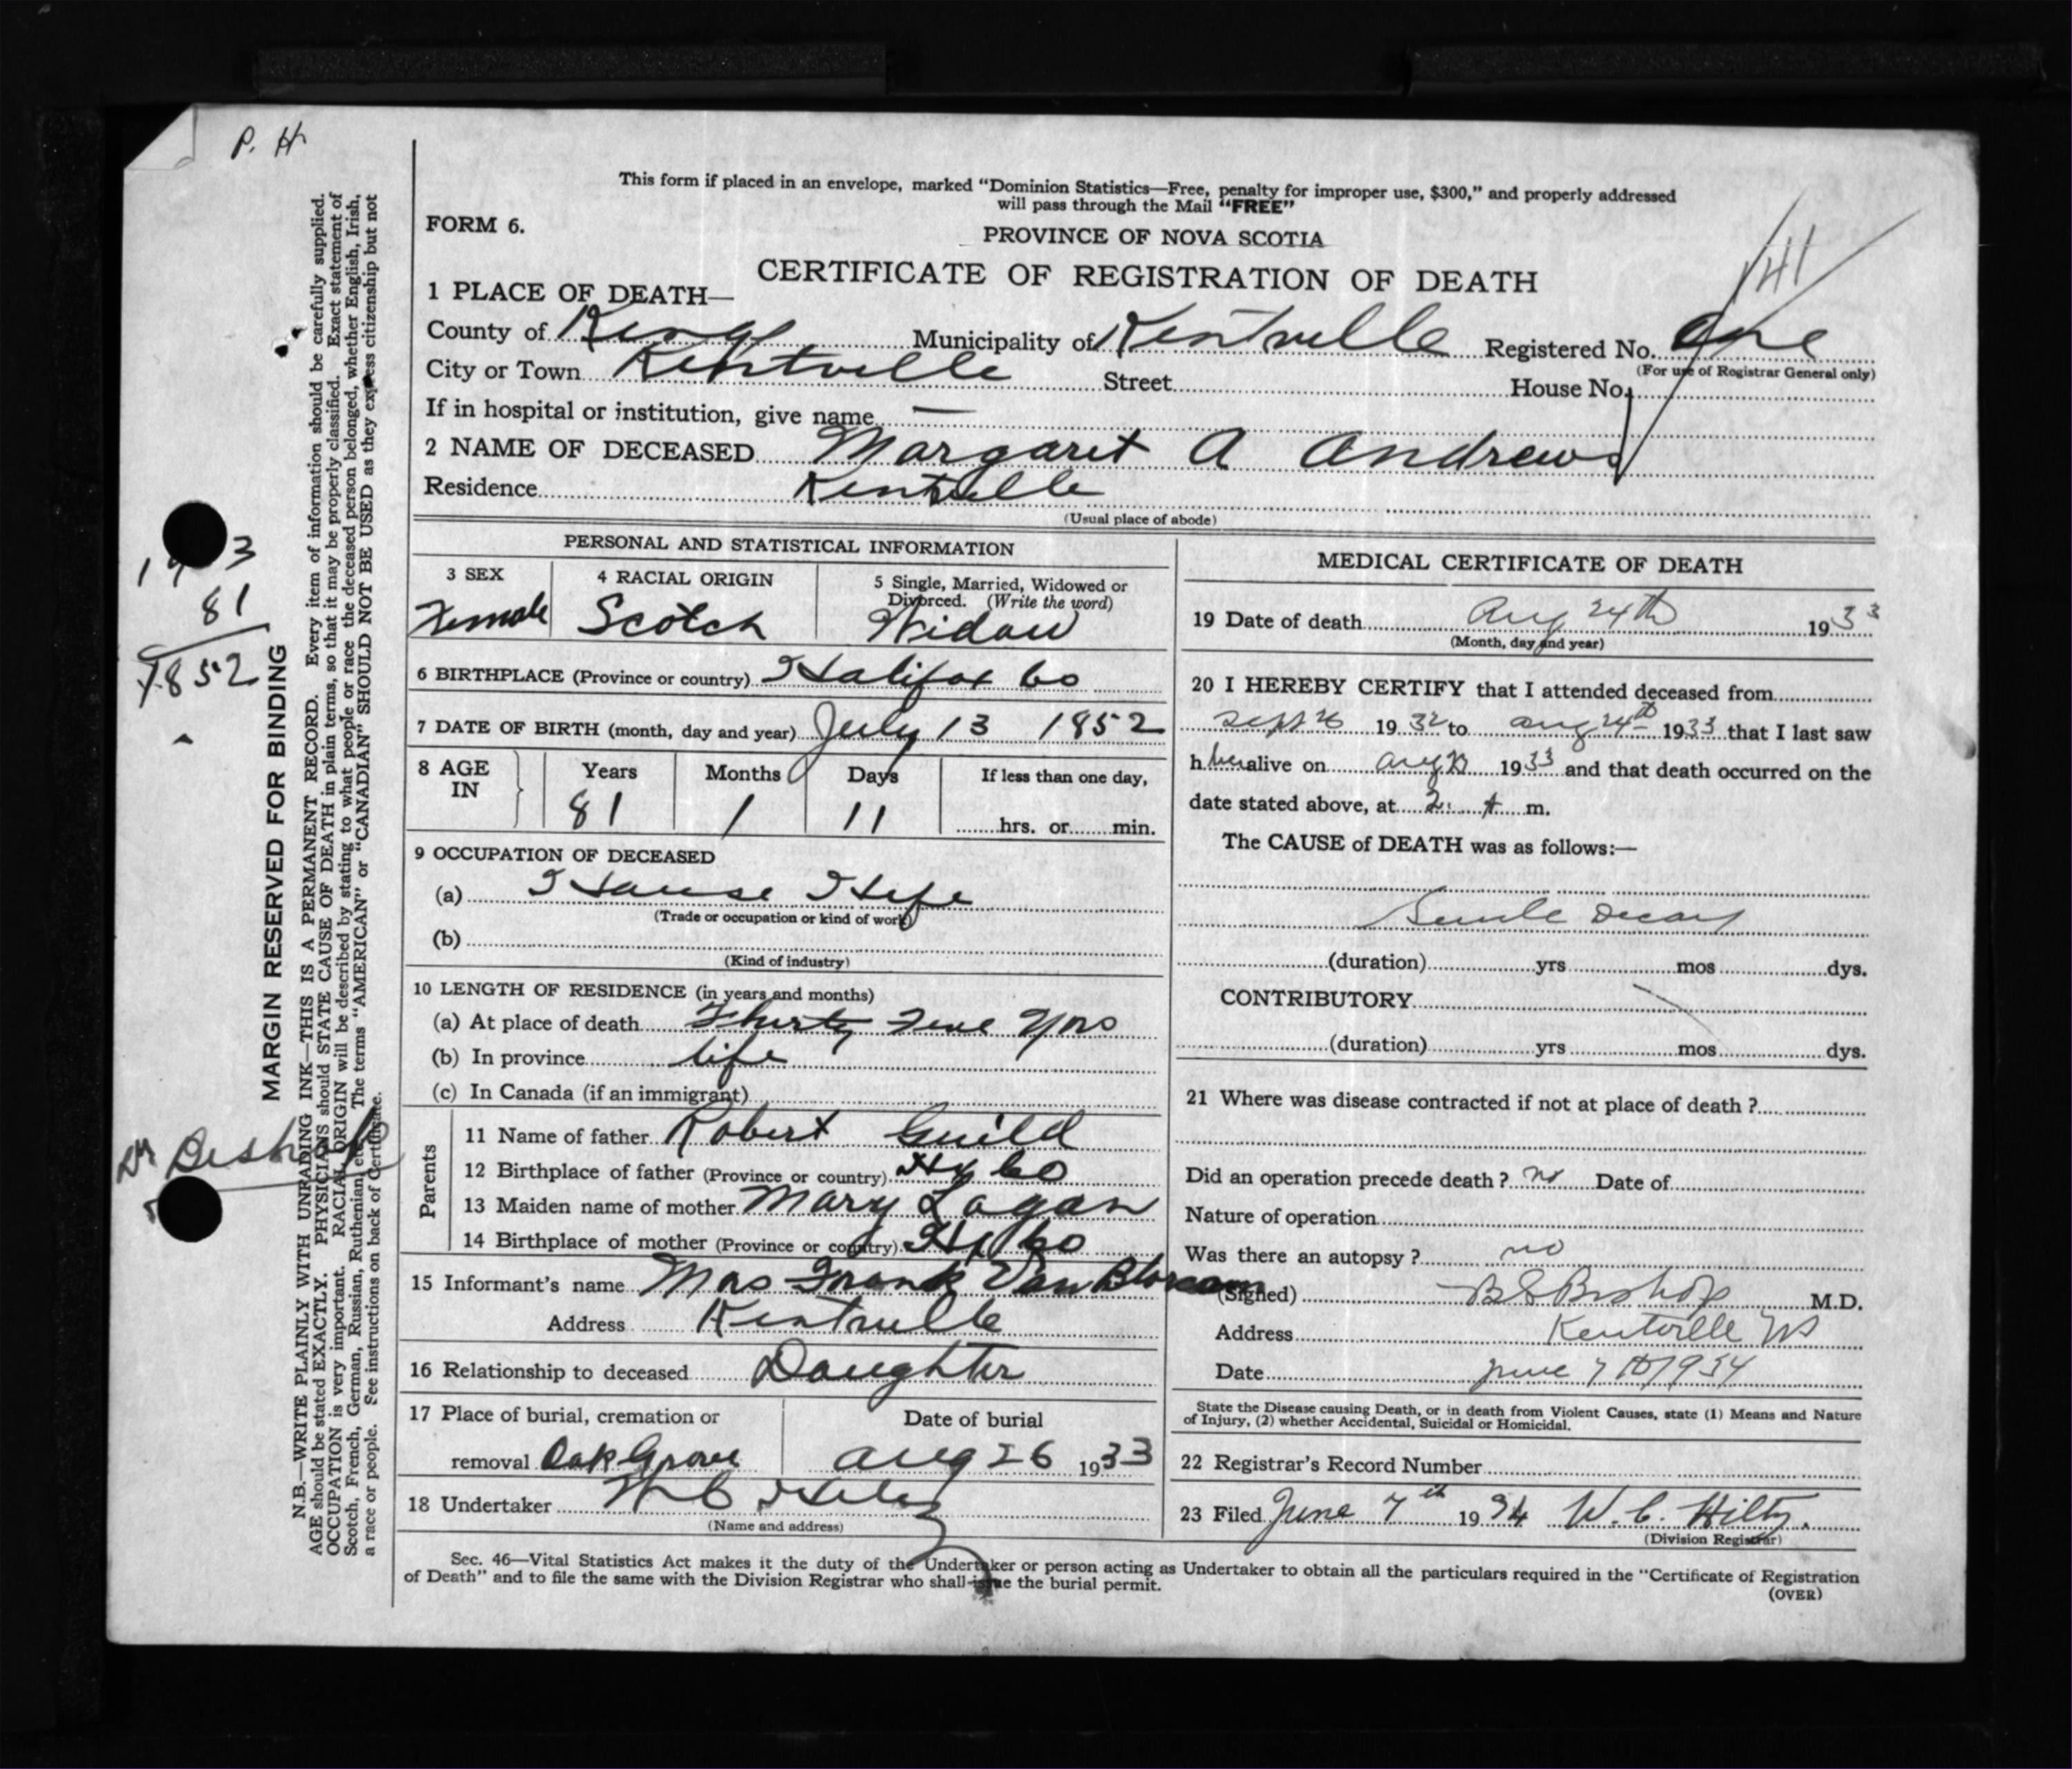 P. H
This form if placed in an envelope, marked "Dominion Statistics—Free, penalty for improper use, $300," and properly addressed
will pass through the Mail "FREE"
FORM 6.
PROVINCE OF NOVA SCOTIA
CERTIFICATE OF REGISTRATION OF DEATH
1 PLACE OF DEATH—
County of Kings Municipality of Kentville Registered No. One
(For use of Registrar General only)
City or Town Kentville Street House No.
If in hospital or institution, give name —
2 NAME OF DECEASED Margaret A Andrews
Residence Kentville
(Usual place of abode)
PERSONAL AND STATISTICAL INFORMATION
3 SEX
Female
4 RACIAL ORIGIN
Scotch
5 Single, Married, Widowed or
Divorced. (Write the word)
Widow
6 BIRTHPLACE (Province or country) Halifax Co
7 DATE OF BIRTH (month, day and year) July 13 1852
8 AGE IN
Years Months Days If less than one day,
81 1 11 hrs. or min.
9 OCCUPATION OF DECEASED
(a) House Wife
(Trade or occupation or kind of work)
(b)
(Kind of industry)
10 LENGTH OF RESIDENCE (in years and months)
(a) At place of death Thirty Five Yrs
(b) In province life
(c) In Canada (if an immigrant)
Parents
11 Name of father Robert Guild
12 Birthplace of father (Province or country) Hx Co
13 Maiden name of mother Mary Logan
14 Birthplace of mother (Province or country) Hx Co
15 Informant's name Mrs Frank Van Blarcom
Address Kentville
16 Relationship to deceased Daughter
17 Place of burial, cremation or
removal Oak Grove
Date of burial
Aug 26 1933
18 Undertaker W C Hiltz
(Name and address)
MEDICAL CERTIFICATE OF DEATH
19 Date of death Aug 24th 1933
(Month, day and year)
20 I HEREBY CERTIFY that I attended deceased from
Sept 26 1932 to Aug 24th 1933 that I last saw
her alive on Aug 1933 and that death occurred on the
date stated above, at 2. A m.
The CAUSE of DEATH was as follows:—
Senile Decay
(duration) yrs mos dys.
CONTRIBUTORY
(duration) yrs mos dys.
21 Where was disease contracted if not at place of death ?
Did an operation precede death ? no Date of
Nature of operation
Was there an autopsy ? no
(Signed) B S Bishop M.D.
Address Kentville NS
Date June 7th 1934
State the Disease causing Death, or in death from Violent Causes, state (1) Means and Nature
of Injury, (2) whether Accidental, Suicidal or Homicidal.
22 Registrar's Record Number
23 Filed June 7th 1934 W. C. Hiltz.
(Division Registrar)
Sec. 46—Vital Statistics Act makes it the duty of the Undertaker or person acting as Undertaker to obtain all the particulars required in the "Certificate of Registration
of Death" and to file the same with the Division Registrar who shall issue the burial permit.
(OVER)
MARGIN RESERVED FOR BINDING
N.B.—WRITE PLAINLY WITH UNFADING INK—THIS IS A PERMANENT RECORD. Every item of information should be carefully supplied.
AGE should be stated EXACTLY. PHYSICIANS should STATE CAUSE OF DEATH in plain terms, so that it may be properly classified. Exact statement of
OCCUPATION is very important. RACIAL ORIGIN will be described by stating to what people or race the deceased person belonged, whether English, Irish,
Scotch, French, German, Russian, Ruthenian, etc. The terms "AMERICAN" or "CANADIAN" SHOULD NOT BE USED as they express citizenship but not
a race or people. See instructions on back of Certificate.
81
1852
Dr Bishop